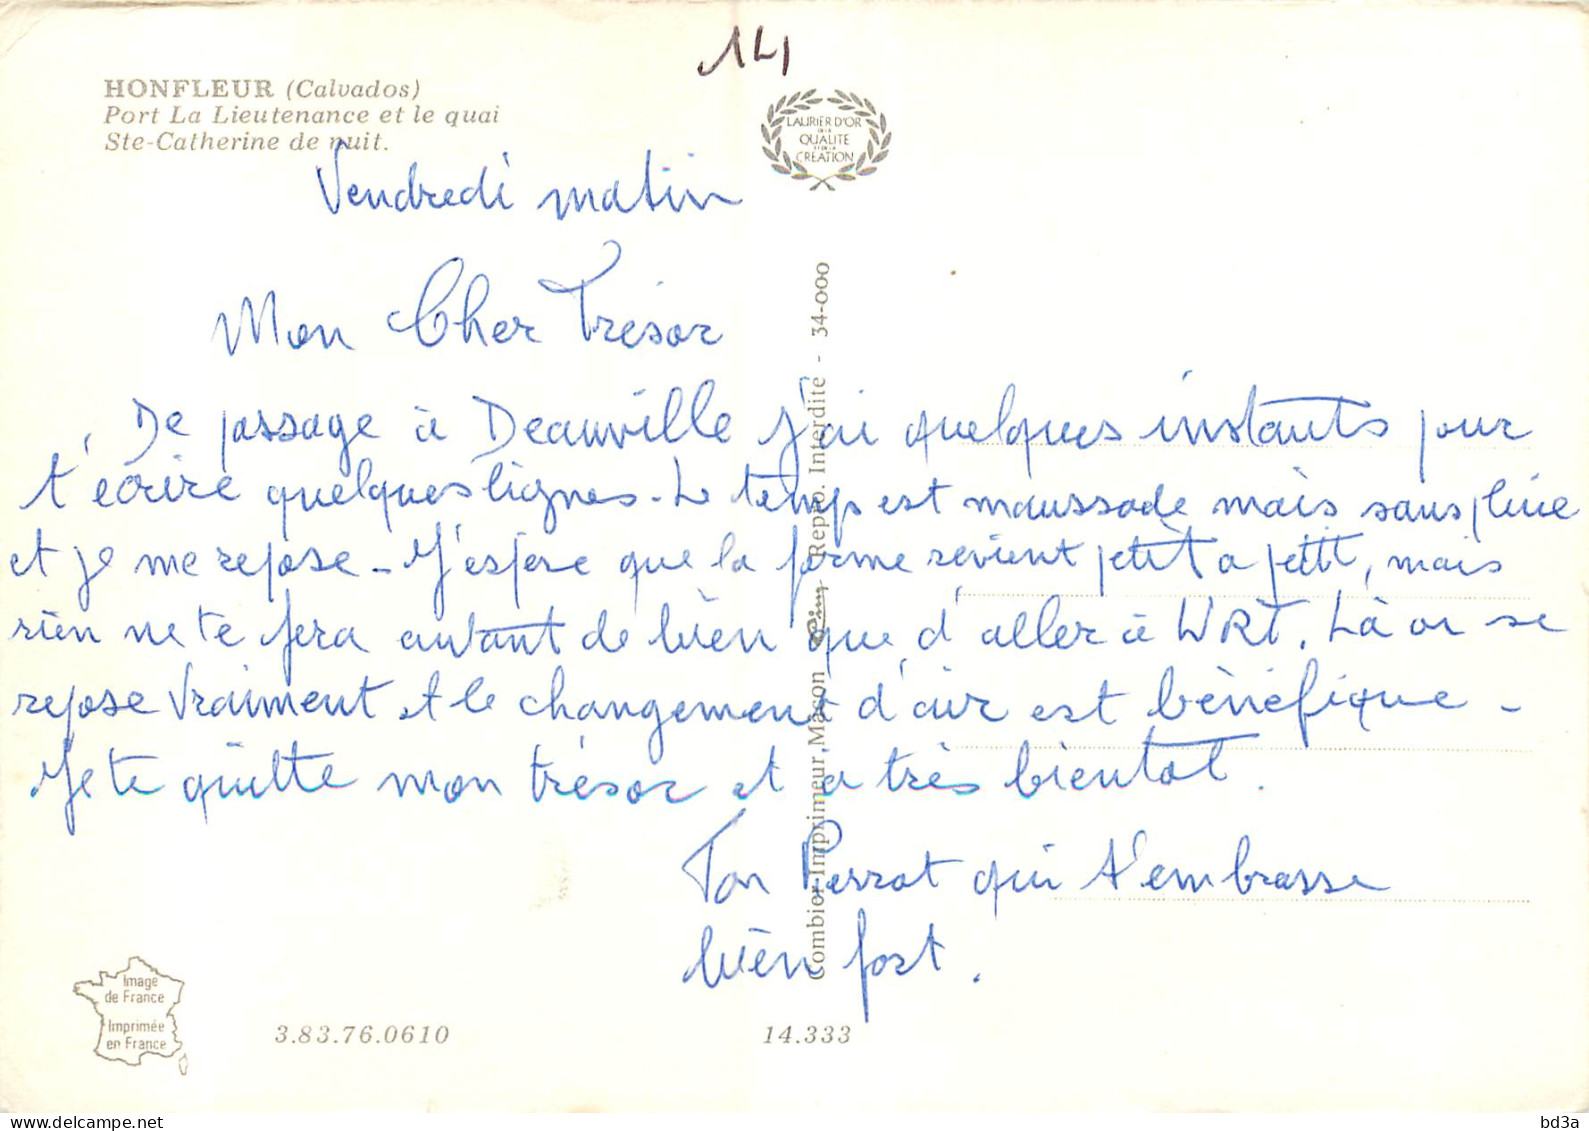 14
HONFLEUR (Calvados)
Port La Lieutenance et le quai
Ste-Catherine de nuit.
LAURIER D'OR
DE LA
QUALITE
ET DE LA
CREATION
Vendredi matin
Mon Cher Trésor
De passage à Deauville j'ai quelques instants pour
t'écrire quelques lignes - Le temps est maussade mais sans pluie
et je me repose - J'espère que la forme revient petit a petit, mais
rien ne te fera autant de bien que d'aller à WRT. Là on se
repose vraiment et le changement d'air est bénéfique -
Je te quitte mon trésor et à très bientot.
Ton Pierrot qui t'embrasse
bien fort.
Combier Imprimeur Mâcon Cim Repro. Interdite - 34-000
Image
de France
Imprimée
en France
3.83.76.0610
14.333
www.delcampe.net
bd3a